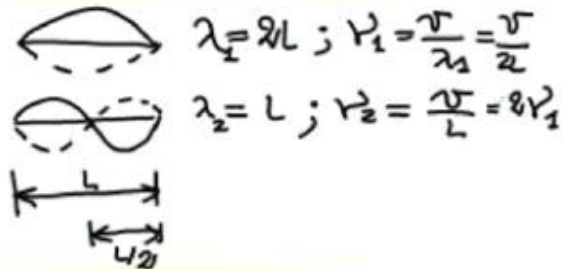 λ₁ = 2L ; ν₁ = v/λ₁ = v/2L
λ₂ = L ; ν₂ = v/L = 2ν₁
L
L/2